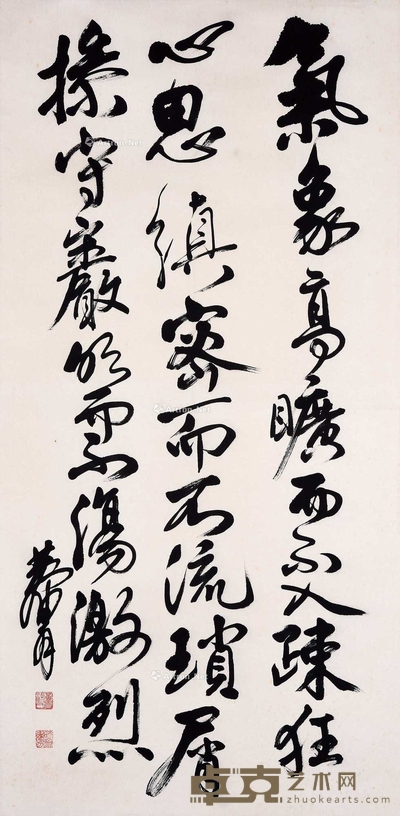 氣象高曠而不入疎狂
心思縝密而不流瑣屑
操守嚴明而不傷激烈
卓克艺术网
zhuokearts.com